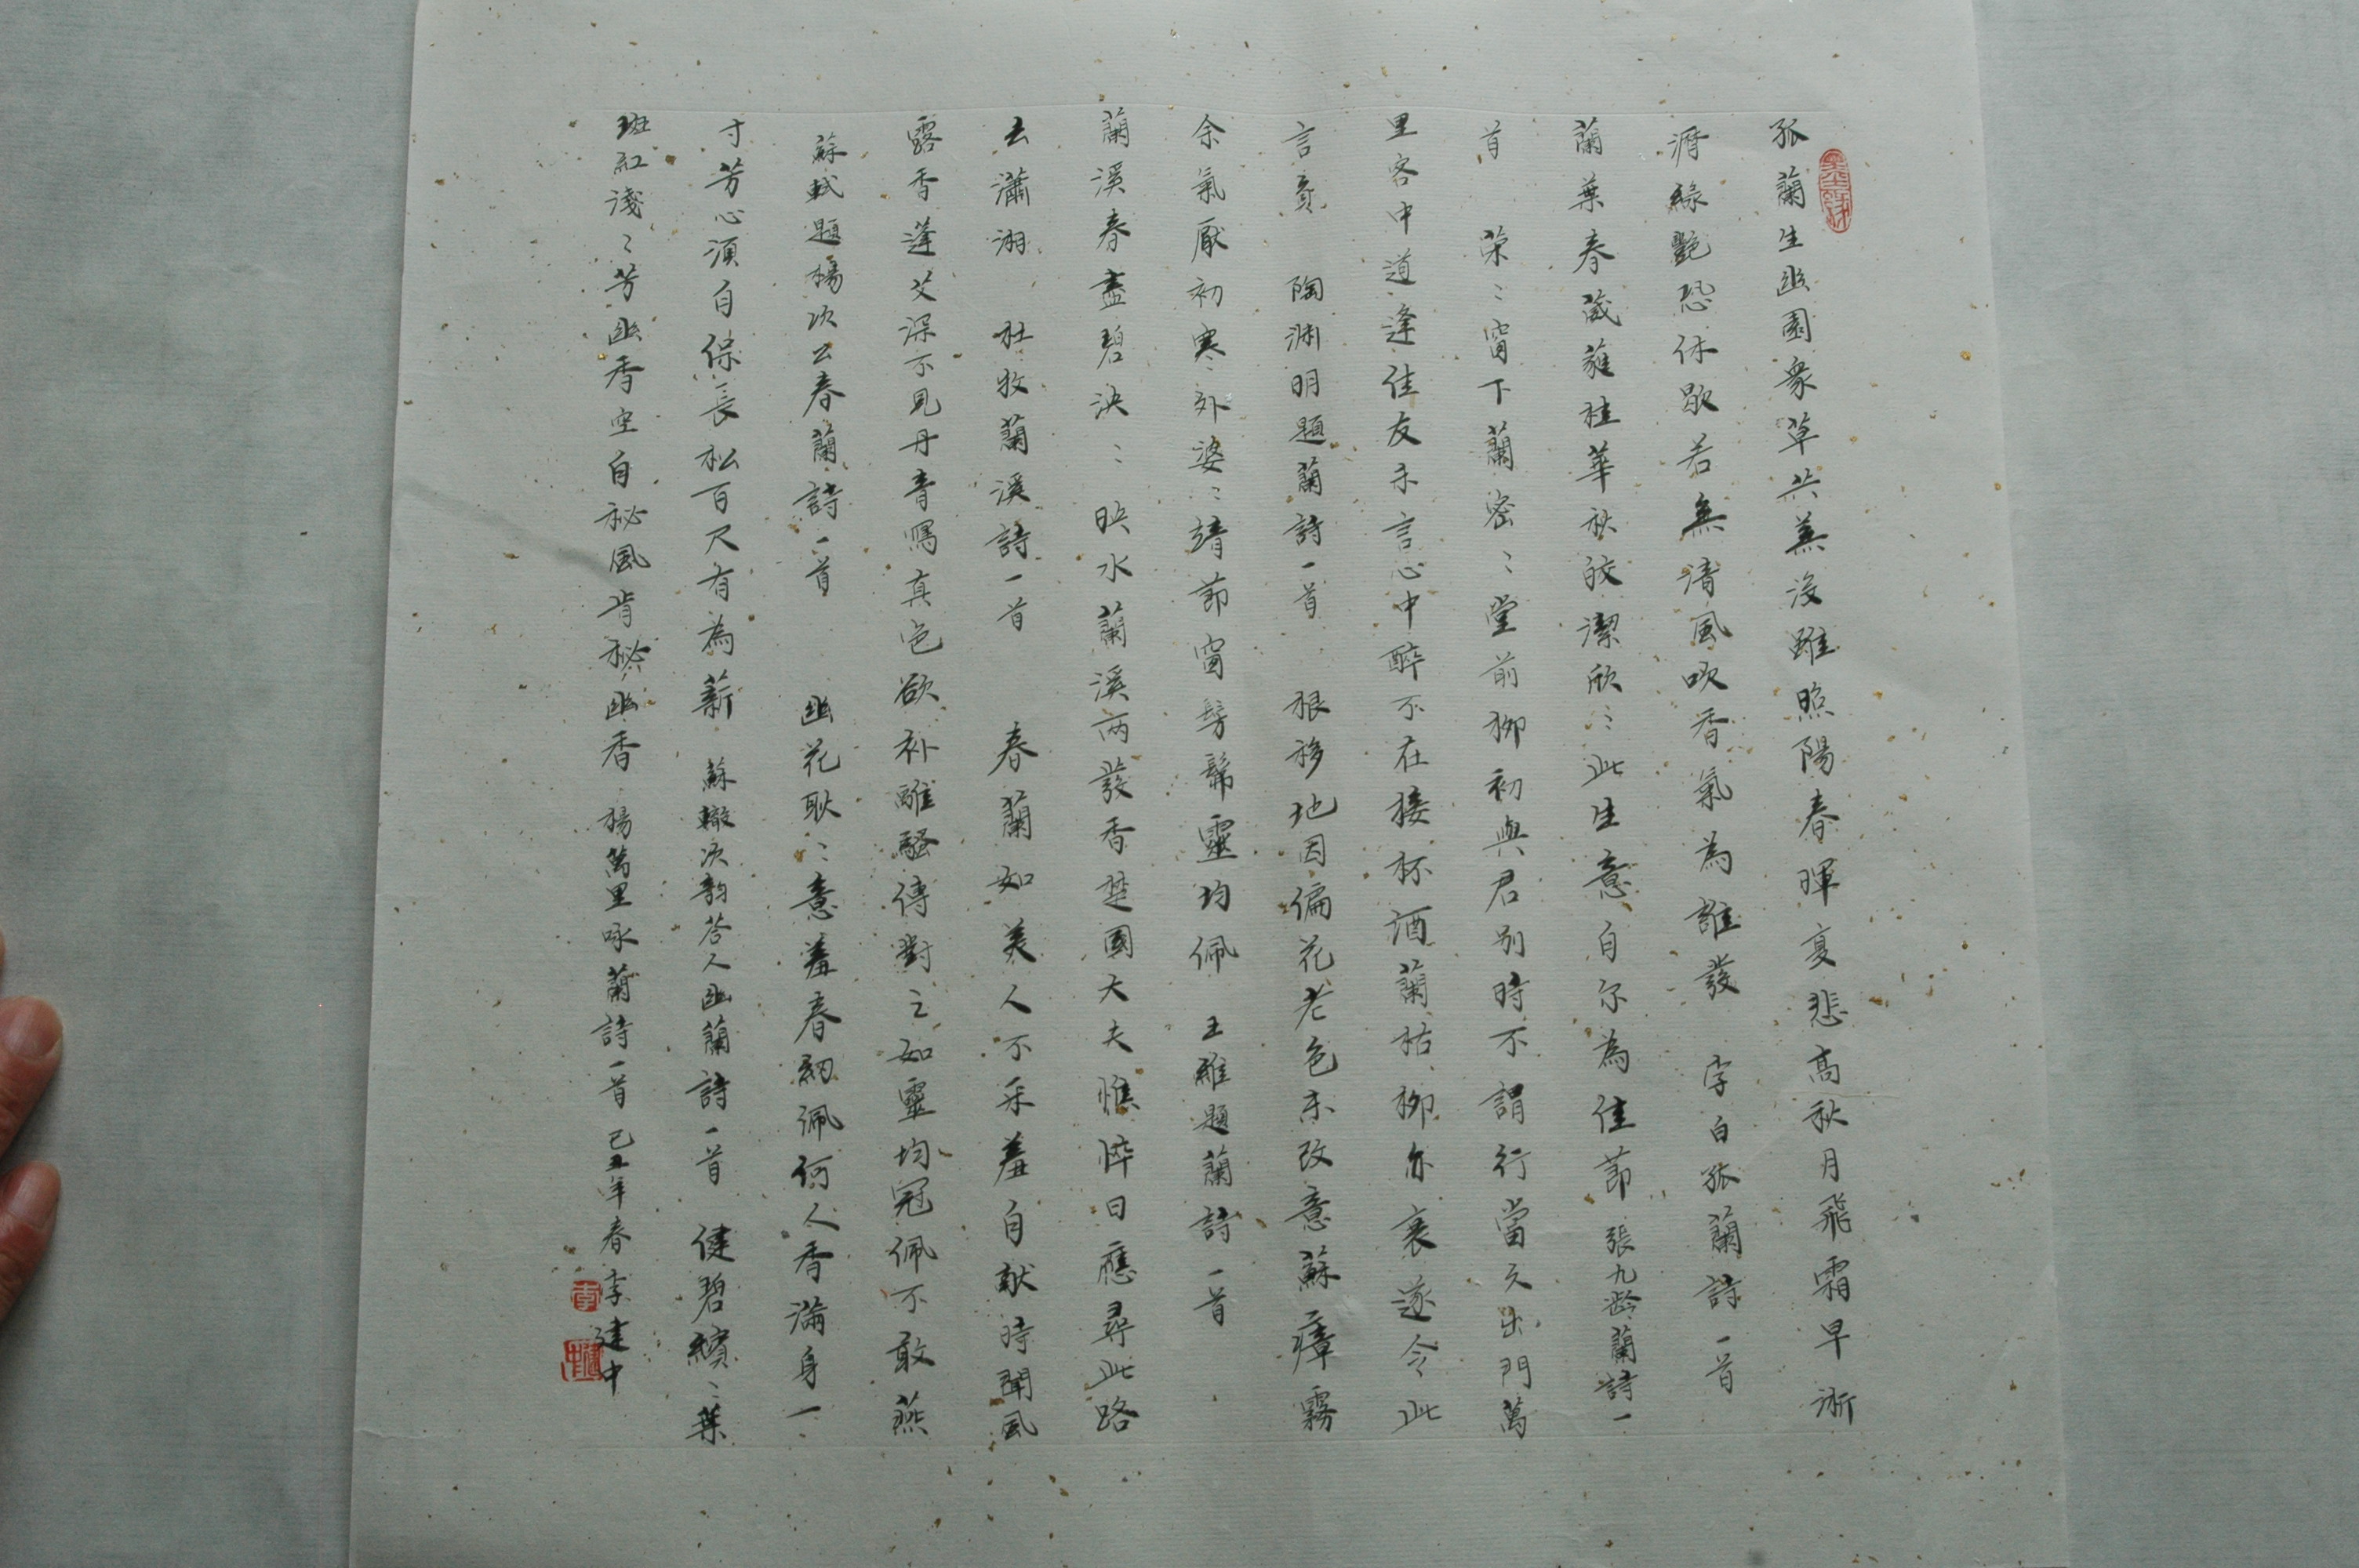 孤蘭生幽園衆草共蕪沒雖照陽春暉夏悲高秋月飛霜早淅
瀝綠艷恐休歇若無清風吹香氣為誰發 李白孤蘭詩一首
蘭葉春葳蕤桂華秋皎潔欣〻此生意自尔為佳節 張九齡蘭詩一
首 荣〻窗下蘭密〻堂前柳初與君别時不謂行當久出門萬
里客中道逢佳友未言心中醉不在接杯酒蘭枯柳亦衰遂令此
言負 陶淵明題蘭詩一首 根移地因偏花老色未改意蘇瘴霧
余氣厭初寒外婆〻靖節窗髣髴靈均佩 王維題蘭詩一首
蘭溪春盡碧泱〻映水蘭溪雨發香楚國大夫憔悴日應尋此路
去瀟湘 杜牧蘭溪詩一首 春蘭如美人不采羞自献時聞風
露香蓬艾深不見丹青寫真色欲补離騷傳對之如靈均冠佩不敢燕
蘇軾題楊次公春蘭詩一首 幽花耿〻意羞春紉佩何人香滿身一
寸芳心須自保長松百尺有為薪 蘇轍次韵答人幽蘭詩一首 健碧繽〻葉
斑紅淺〻芳幽香空自秘風肯秘幽香 楊萬里咏蘭詩一首 己丑年春李建中